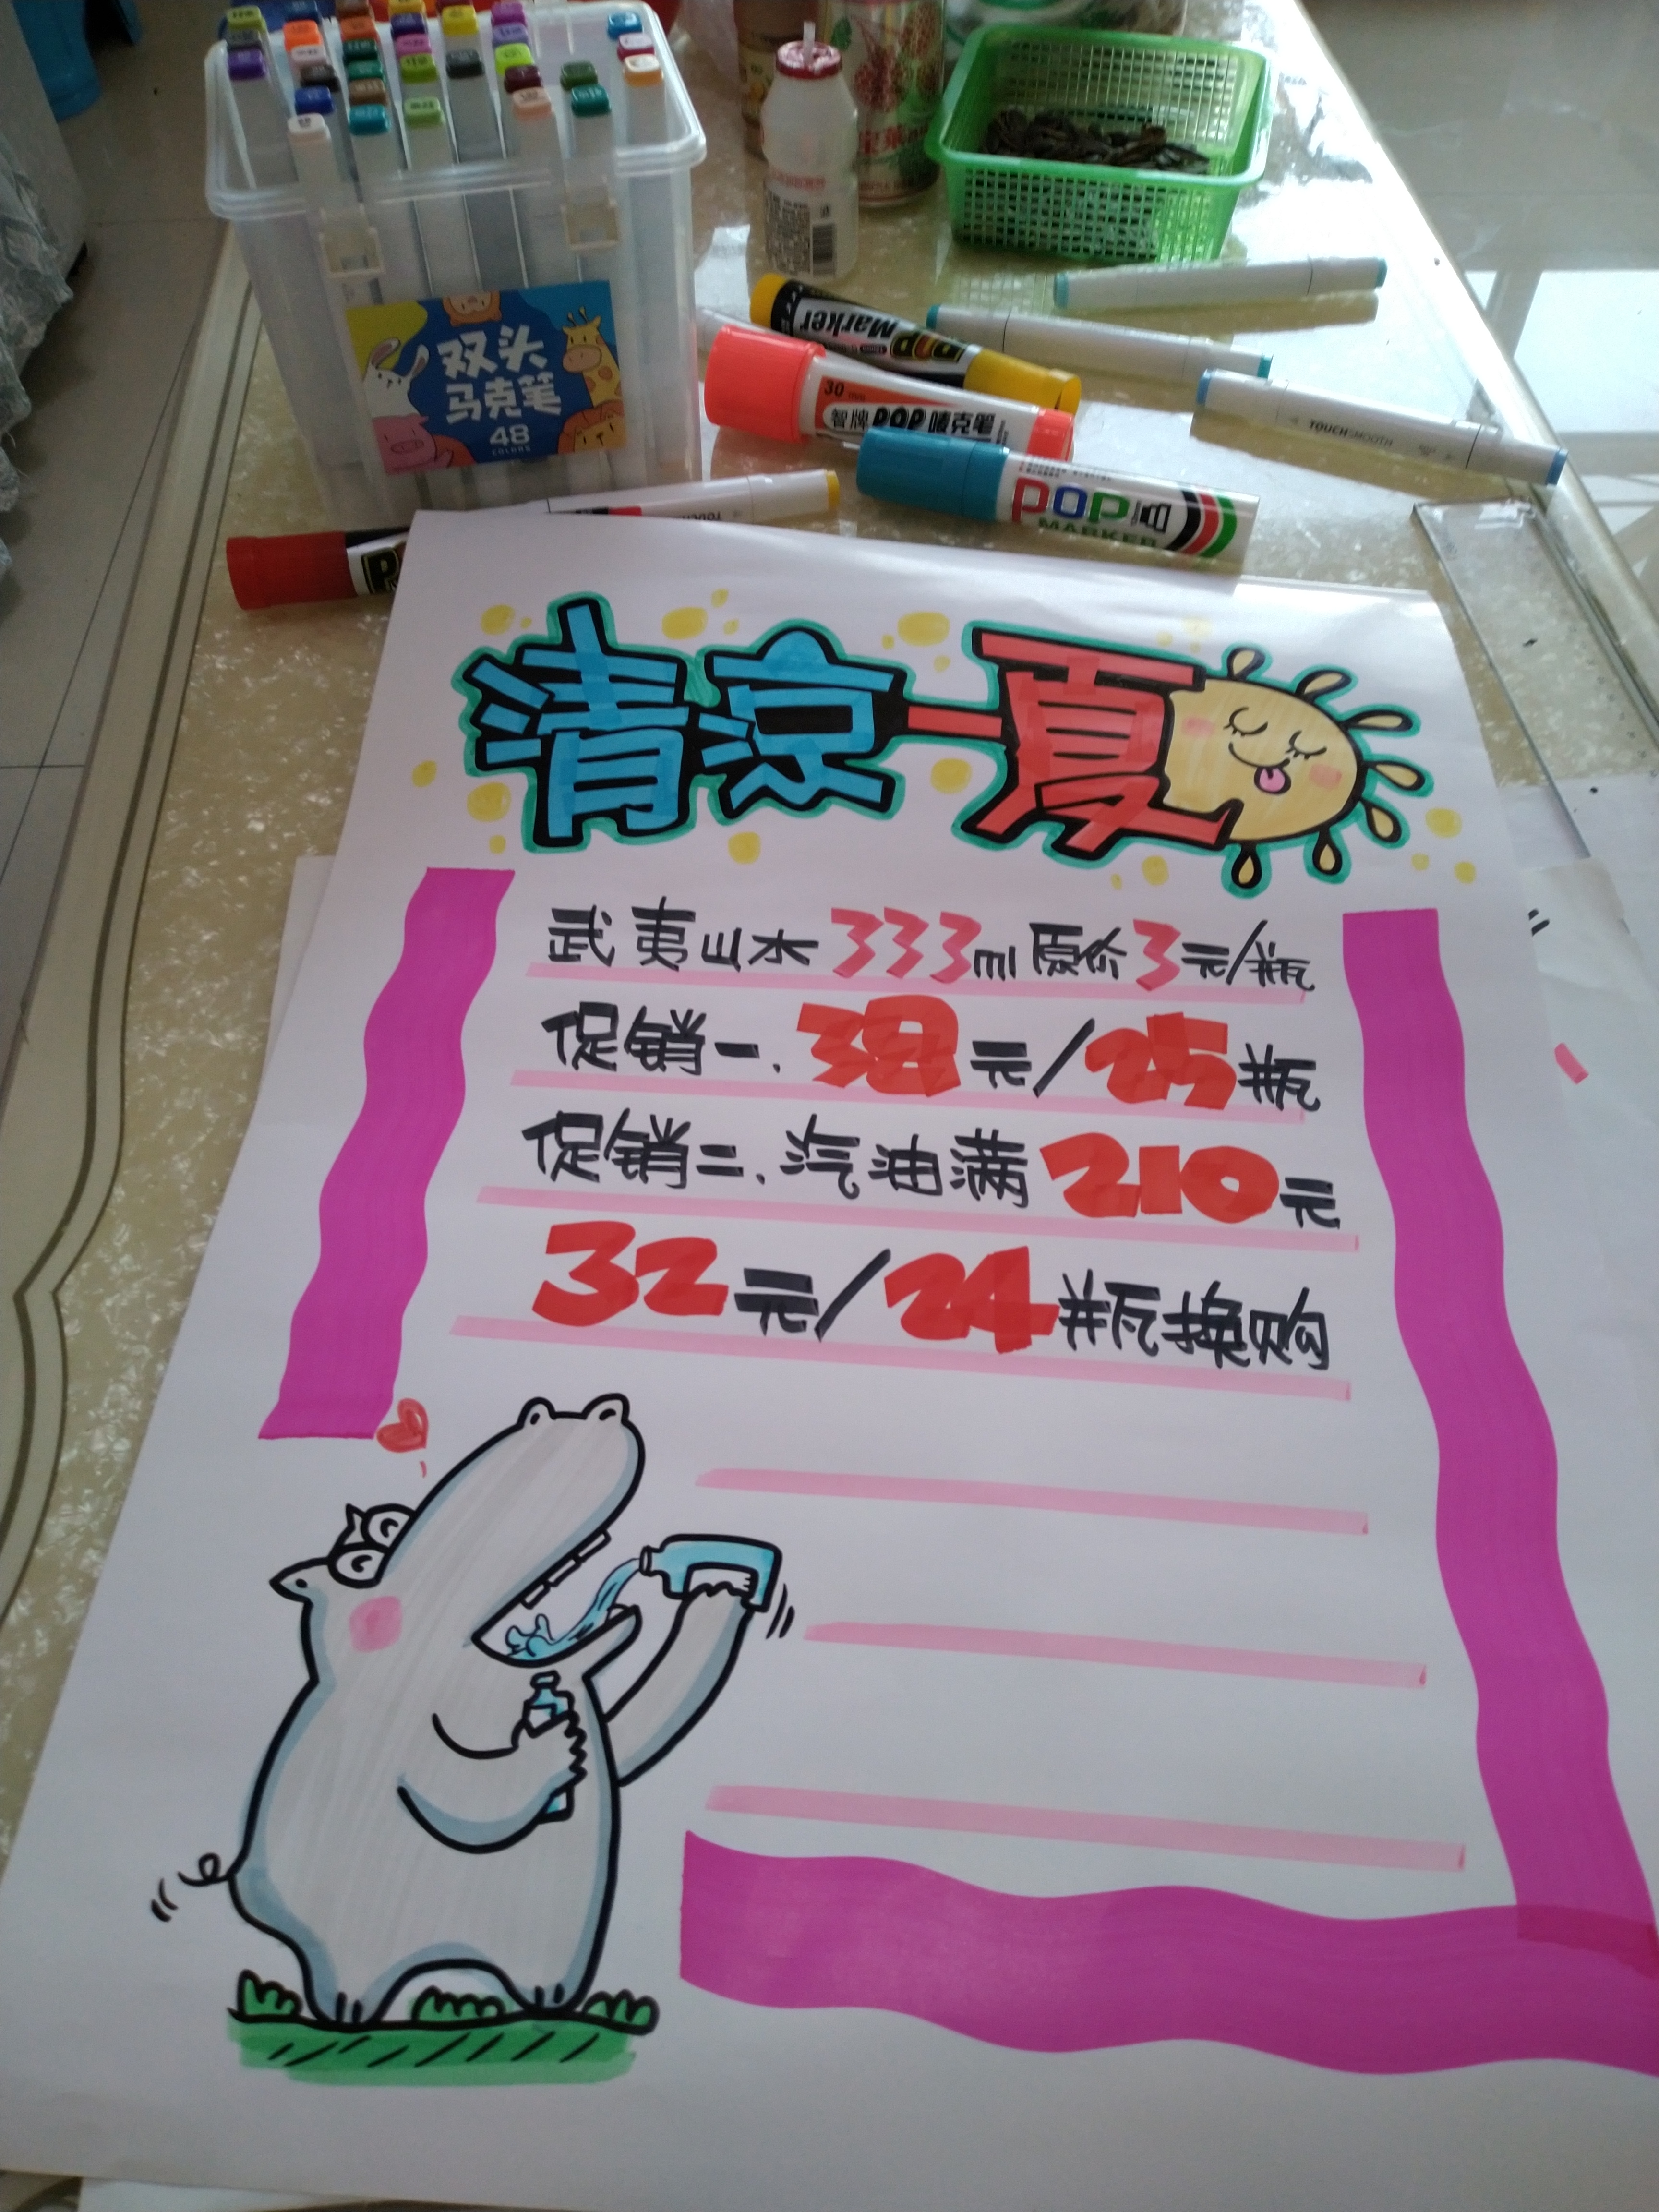 双头
马克笔
48
COLORS
Marker
POP
30
智牌POP唛克笔
TOUCH SMOOTH
POP
MARKER
清凉一夏
武夷山水333ml原价3元/瓶
促销一.38元/25瓶
促销二.汽油满210元
32元/24瓶换购